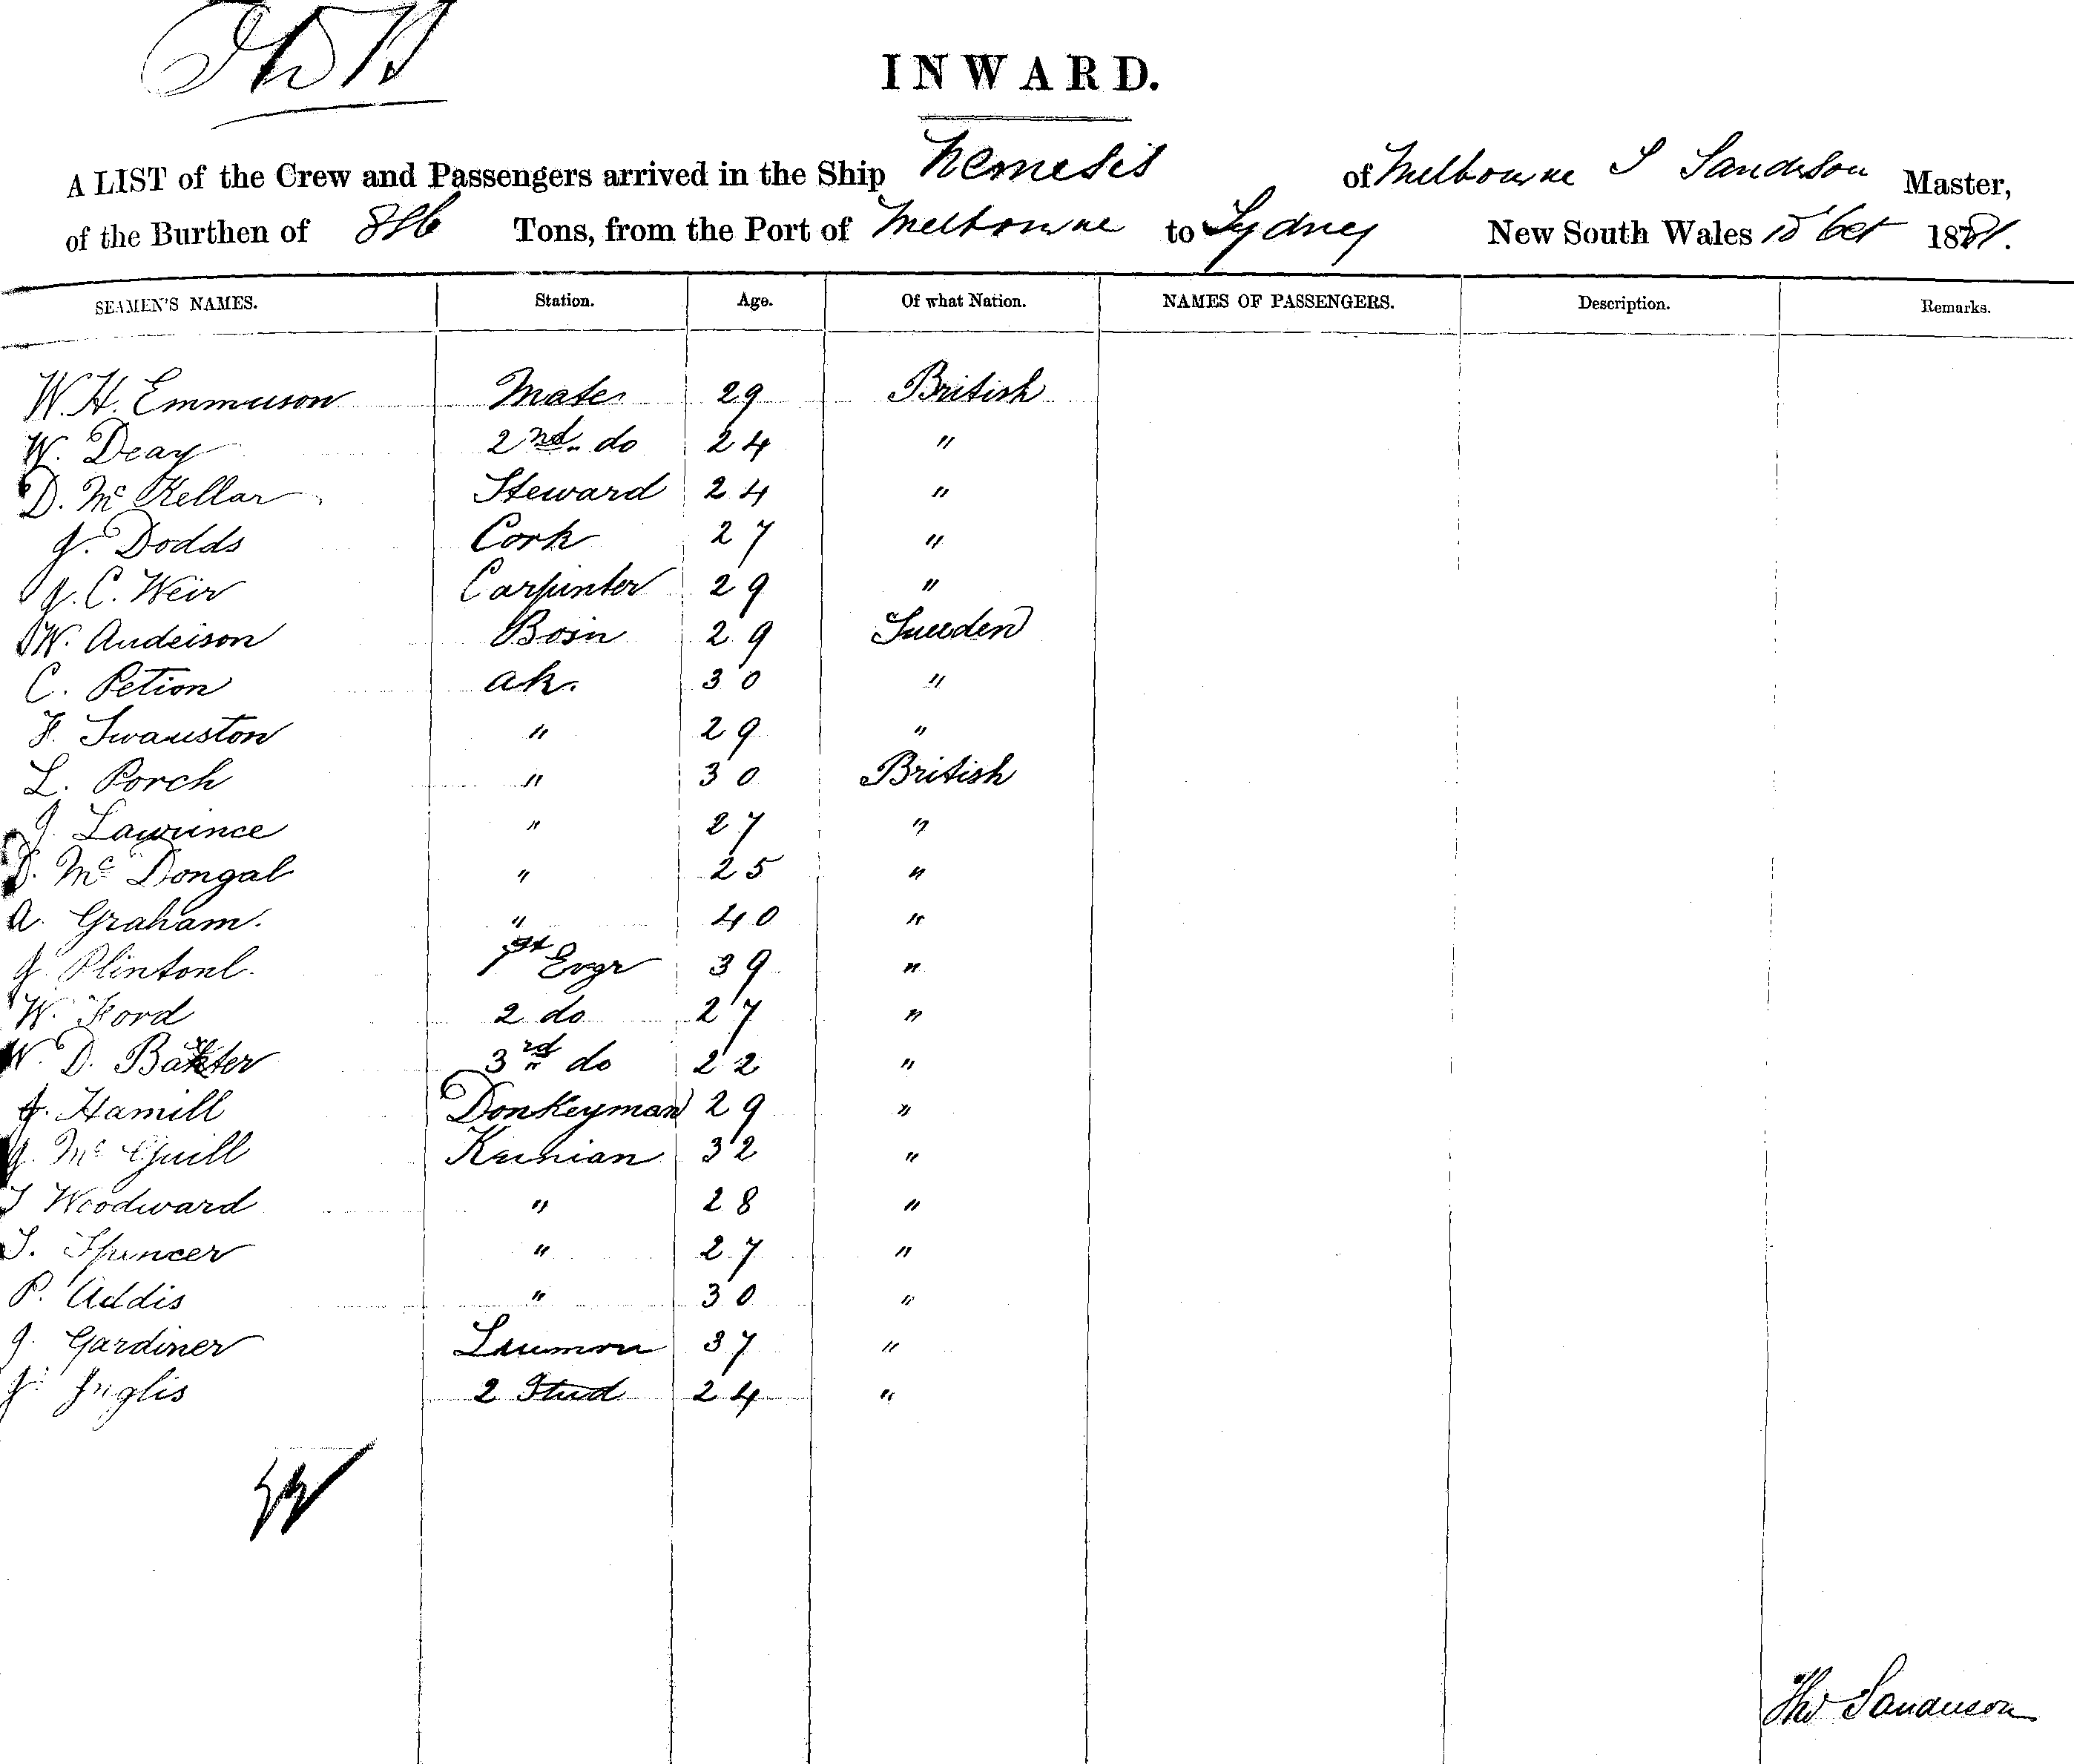 INWARD.
A LIST of the Crew and Passengers arrived in the Ship Nemesis of Melbourne T Sanderson Master,
of the Burthen of 816 Tons, from the Port of Melbourne to Sydney New South Wales 15 Oct 1881.
SEAMEN'S NAMES. Station. Age. Of what Nation. NAMES OF PASSENGERS. Description. Remarks.
W. H. Emmerson Mate 29 British
W. Deay 2nd do 24 "
D. Mc Kellar Steward 24 "
J. Dodds Cook 27 "
J. C. Weir Carpenter 29 "
W. Anderson Bosn 29 Sweden
C. Petion 30 "
F. Swanston " 29 "
L. Porch " 30 British
J. Lawrence " 27 "
D. Mc Dongal " 25 "
A. Graham. " 40 "
J. 1st Engr 39 "
W. Ford 2 do 27 "
W. D. Baxter 3rd do 22 "
J. Hamill Donkeyman 29 "
J. Mc Guill 32 "
T Woodward " 28 "
S. Spencer " 27 "
P. Addis " 30 "
J. Gardiner 37 "
J. Inglis 2 Stud 24 "
Thos Sanderson